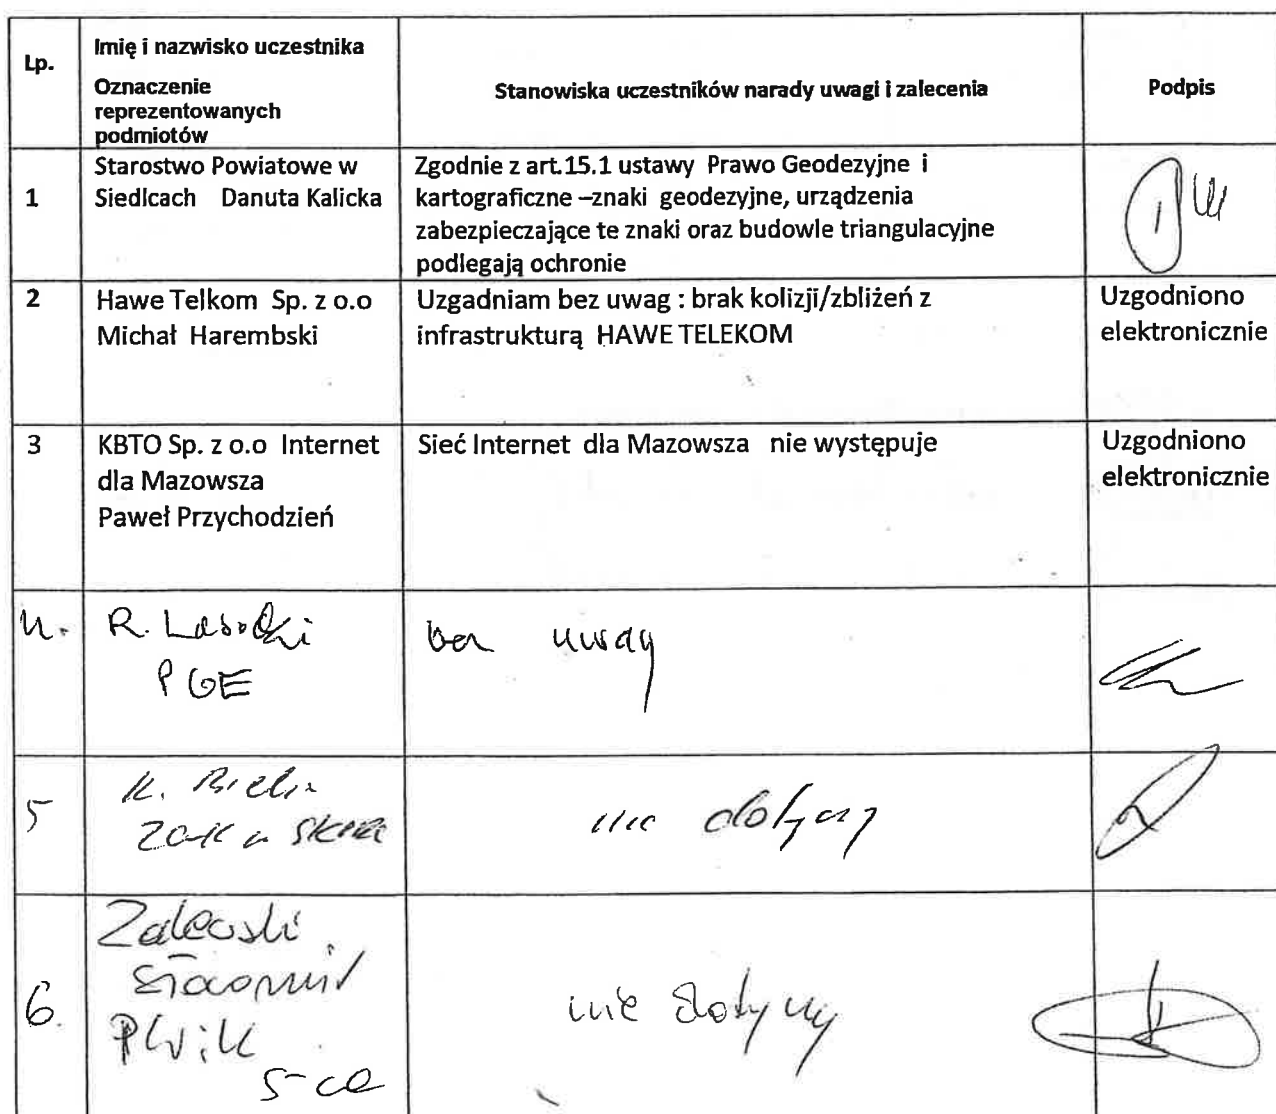 Lp.
Imię i nazwisko uczestnika
Oznaczenie
reprezentowanych
podmiotów
Stanowiska uczestników narady uwagi i zalecenia
Podpis
1
Starostwo Powiatowe w
Siedlcach Danuta Kalicka
Zgodnie z art.15.1 ustawy Prawo Geodezyjne i
kartograficzne –znaki geodezyjne, urządzenia
zabezpieczające te znaki oraz budowle triangulacyjne
podlegają ochronie
2
Hawe Telkom Sp. z o.o
Michał Harembski
Uzgadniam bez uwag : brak kolizji/zbliżeń z
infrastrukturą HAWE TELEKOM
Uzgodniono
elektronicznie
3
KBTO Sp. z o.o Internet
dla Mazowsza
Paweł Przychodzień
Sieć Internet dla Mazowsza nie występuje
Uzgodniono
elektronicznie
4.
R.
PGE
bez uwag
5
K.
nie dotyczy
6.
Zalewski
Sławomir
PWiK
S-ce
nie dotyczy